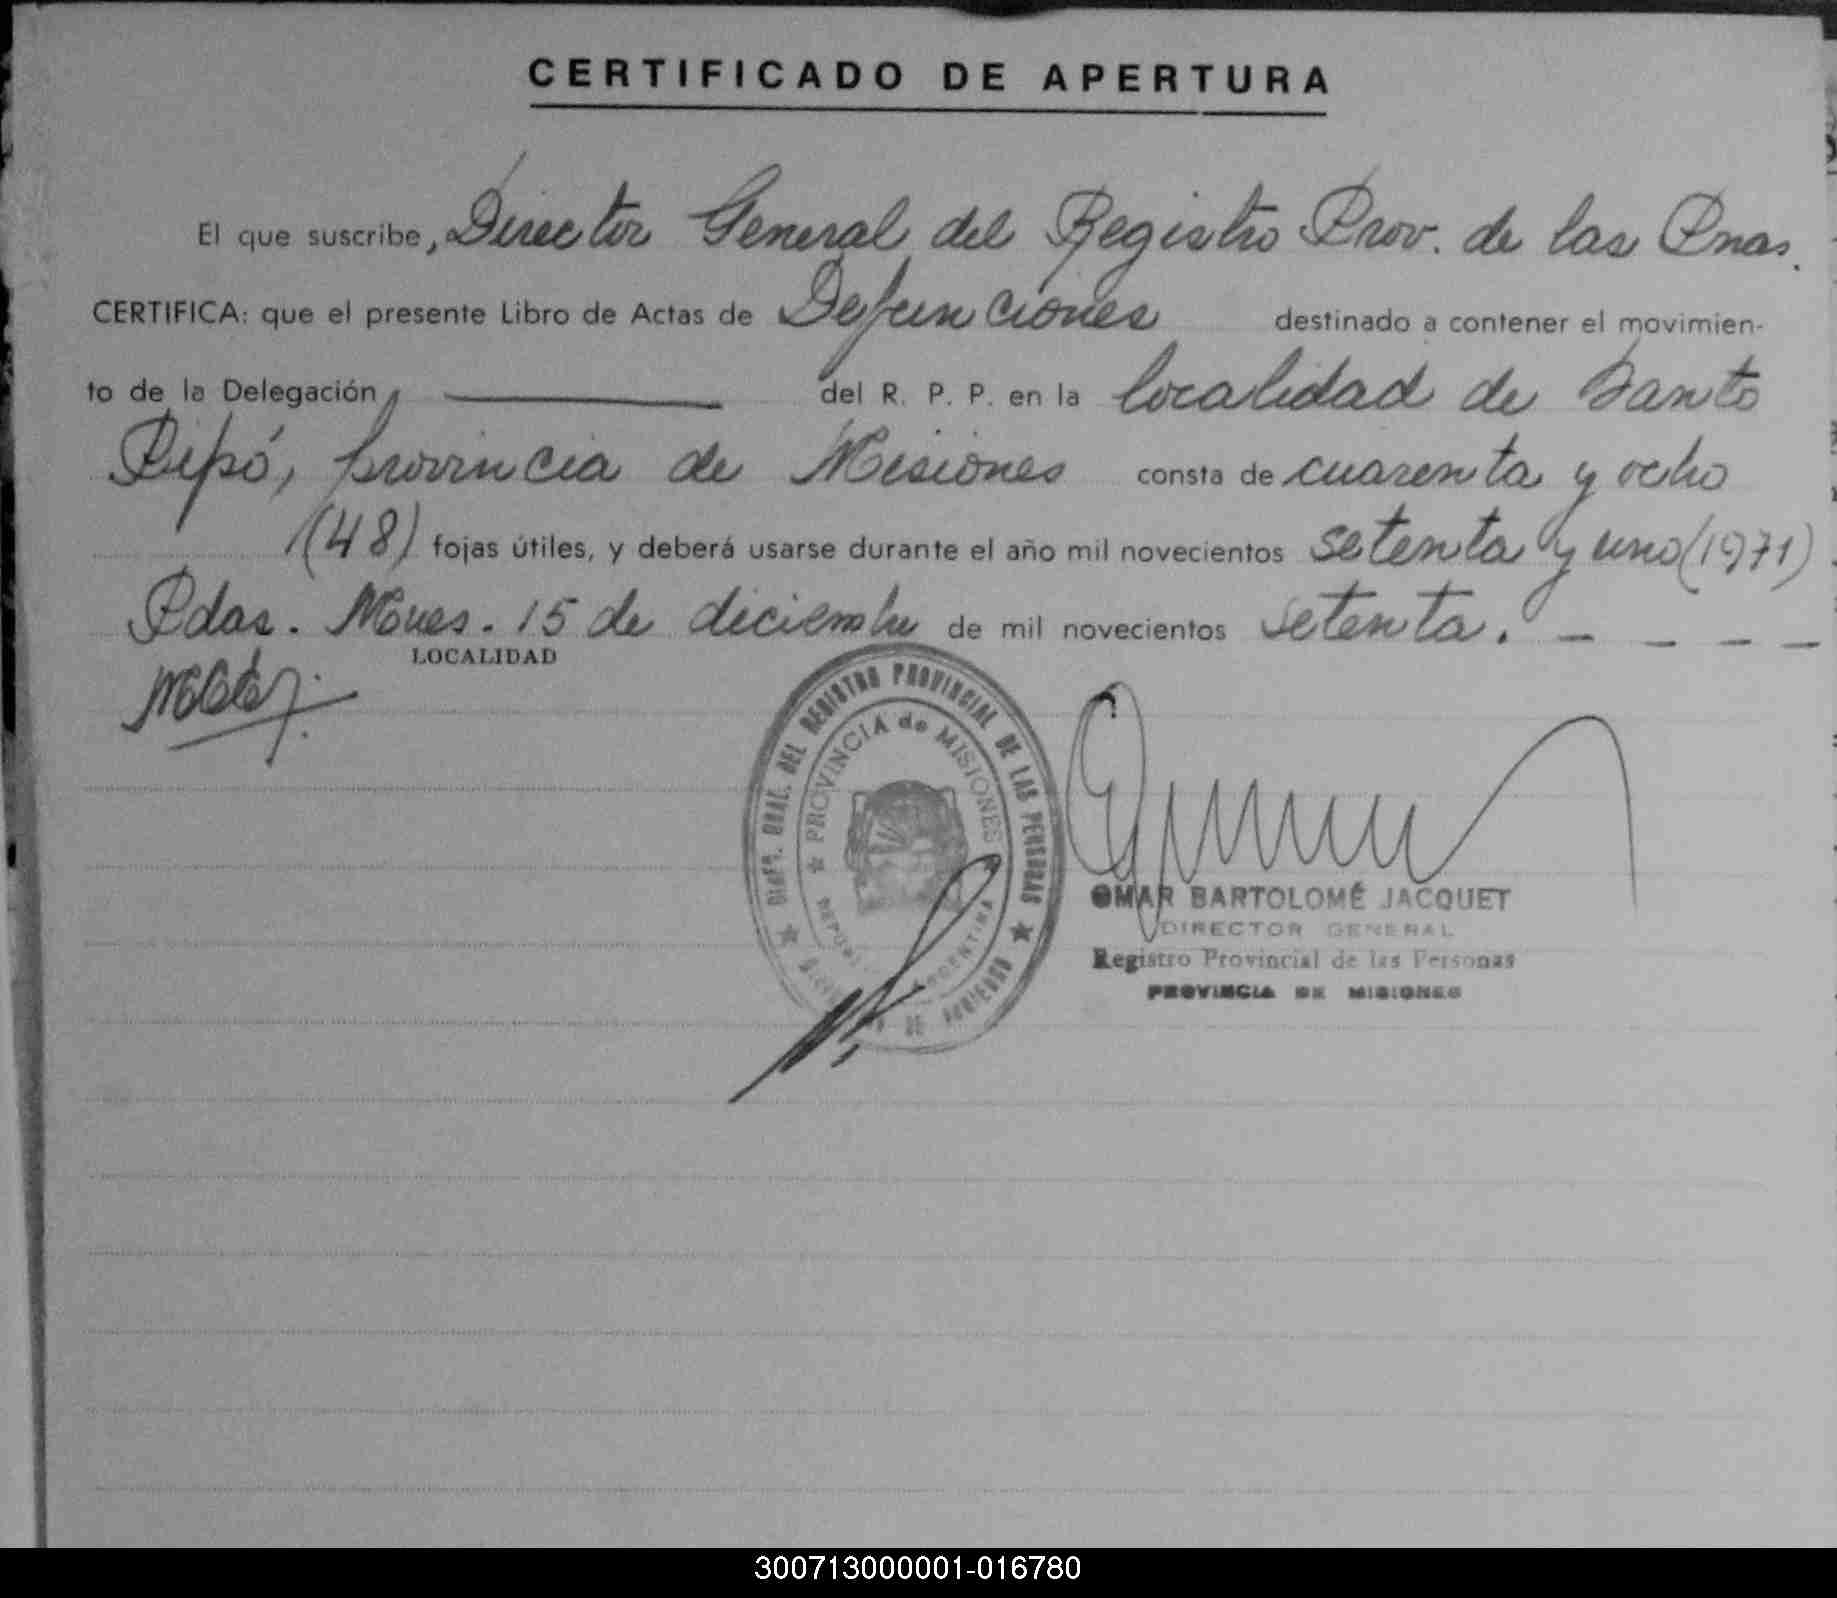 CERTIFICADO DE APERTURA
El que suscribe, Director General del Registro Prov. de las Pnas.
CERTIFICA: que el presente Libro de Actas de Defunciones destinado a contener el movimien-
to de la Delegación, ——— del R. P. P. en la localidad de Santo
Pipó, provincia de Misiones consta de cuarenta y ocho
(48) fojas útiles, y deberá usarse durante el año mil novecientos setenta y uno (1971)
Pdas. Mnes. 15 de diciembre de mil novecientos setenta. _ _ _ _
LOCALIDAD
DIREC. GRAL. DEL REGISTRO PROVINCIAL DE LAS PERSONAS
PROVINCIA de MISIONES
OMAR BARTOLOMÉ JACQUET
DIRECTOR GENERAL
Registro Provincial de las Personas
PROVINCIA DE MISIONES
300713000001-016780